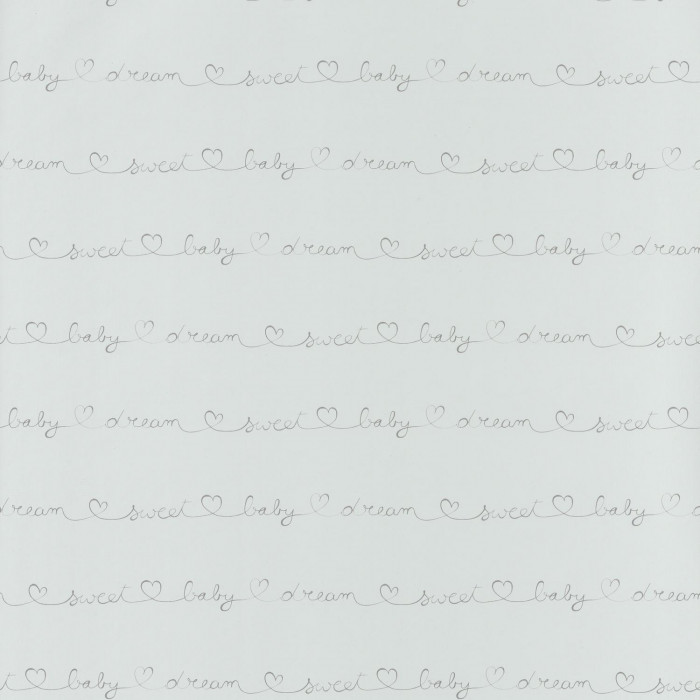 baby ♡ dream ♡ sweet ♡ baby ♡ dream ♡ sweet ♡
dream ♡ sweet ♡ baby ♡ dream ♡ sweet ♡ baby ♡
♡ sweet ♡ baby ♡ dream ♡ sweet ♡ baby ♡ dream
♡ baby ♡ dream ♡ sweet ♡ baby ♡ dream ♡
baby ♡ dream ♡ sweet ♡ baby ♡ dream ♡ sweet ♡
dream ♡ sweet ♡ baby ♡ dream ♡ sweet ♡ baby ♡
♡ sweet ♡ baby ♡ dream ♡ sweet ♡ baby ♡ dream
♡ baby ♡ dream ♡ sweet ♡ baby ♡ dream ♡